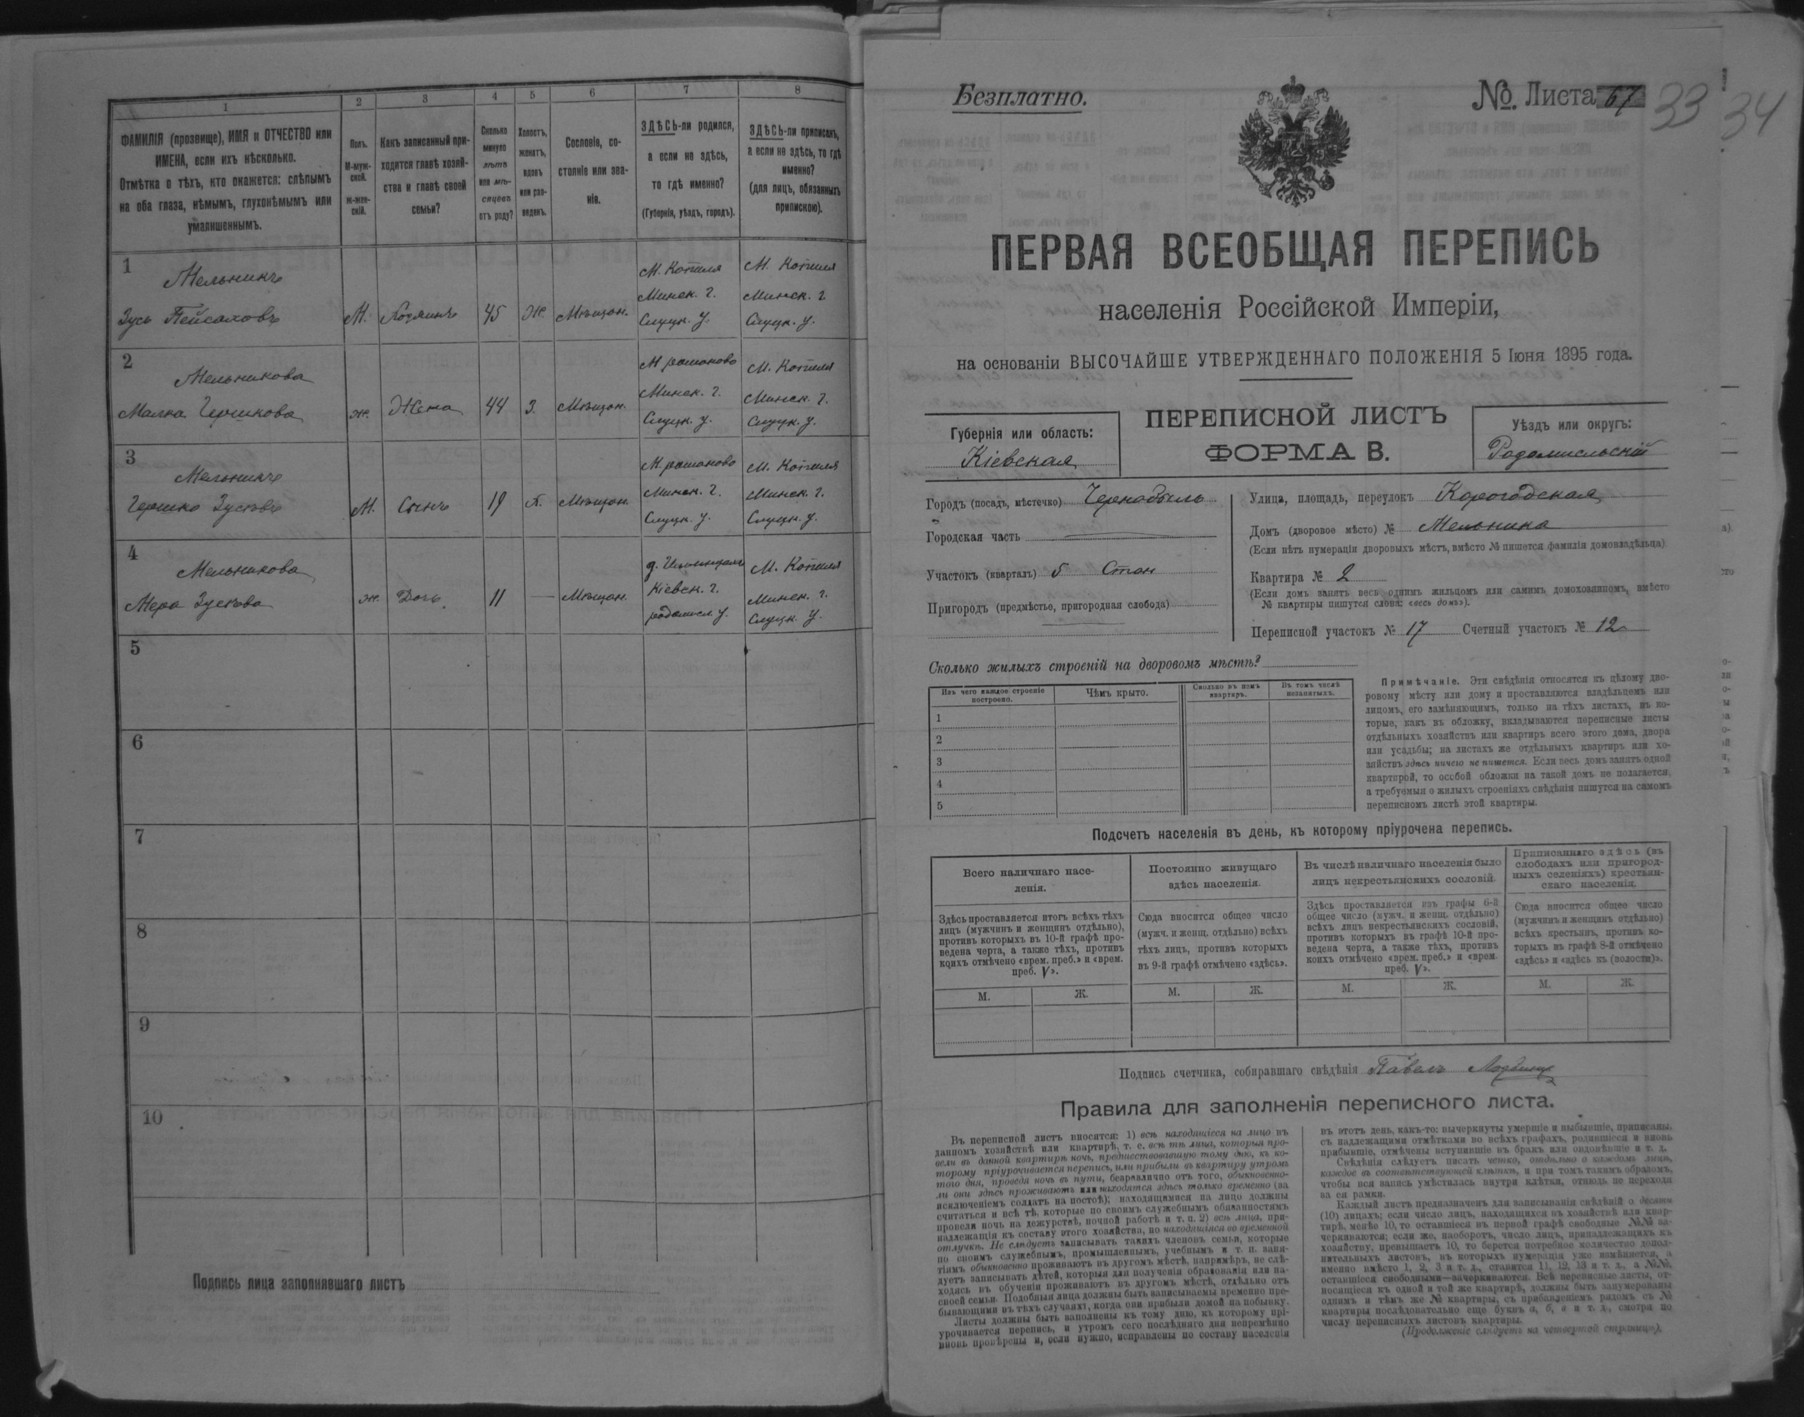 1 2 3 4 5 6 7 8
ФАМИЛІЯ (прозвище), ИМЯ и ОТЧЕСТВО или
ИМЕНА, если ихъ нѣсколько.
Отмѣтка о тѣхъ, кто окажется: слѣпымъ
на оба глаза, нѣмымъ, глухонѣмымъ или
умалишеннымъ.
Полъ.
М-муж-
ской.
Ж-жен-
скій.
Какъ записанный при-
ходится главѣ хозяй-
ства и главѣ своей
семьи?
Сколько
минуло
лѣтъ
или мѣ-
сяцевъ
отъ роду?
Холостъ,
женатъ,
вдовъ
или раз-
веденъ.
Сословіе, со-
стояніе или зва-
ніе.
ЗДѢСЬ-ли родился,
а если не здѣсь,
то гдѣ именно?
(Губернія, уѣздъ, городъ).
ЗДѢСЬ-ли приписанъ,
а если не здѣсь, то гдѣ
именно?
(для лицъ, обязанныхъ
припискою).
1
Мельникъ
Зусь Пейсаховъ
М.
Хозяинъ
45
Ж.
Мѣщан.
М. Копыля
Минск. г.
Слуцк. у.
М. Копыля
Минск. г.
Слуцк. у.
2
Мельникова
Малка Гершкова
ж.
Жена
44
З.
Мѣщан.
М. Романово
Минск. г.
Слуцк. у.
М. Копыля
Минск. г.
Слуцк. у.
3
Мельникъ
Гершко Зусевъ
М.
Сынъ
19
Х.
Мѣщан.
М. Романово
Минск. г.
Слуцк. у.
М. Копыля
Минск. г.
Слуцк. у.
4
Мельникова
Мера Зусева
ж.
Дочь
11
—
Мѣщан.
Кіевск. г.
радомысл у.
М. Копыля
Минск. г.
Слуцк. у.
5
6
7
8
9
10
Подпись лица заполнявшаго листъ
Безплатно.
№. Листа 67 33 34
ПЕРВАЯ ВСЕОБЩАЯ ПЕРЕПИСЬ
населенія Россійской Имперіи,
на основаніи ВЫСОЧАЙШЕ УТВЕРЖДЕННАГО ПОЛОЖЕНІЯ 5 Іюня 1895 года.
Губернія или область:
Кіевская
ПЕРЕПИСНОЙ ЛИСТЪ
ФОРМА В.
Уѣздъ или округъ:
Радомысльскій
Городъ (посадъ, мѣстечко) Чернобыль
Городская часть
Участокъ (кварталъ) 5 Стан
Пригородъ (предмѣстье, пригородная слобода)
Улица, площадь, переулокъ Корогодская
Домъ (дворовое мѣсто) № Мельника
(Если нѣтъ нумераціи дворовыхъ мѣстъ, вмѣсто № пишется фамилія домовладѣльца)
Квартира № 2
(Если домъ занятъ весь однимъ жильцомъ или самимъ домохозяиномъ, вмѣсто
№ квартиры пишутся слова: «весь домъ»).
Переписной участокъ № 17 Счетный участокъ № 12
Сколько жилыхъ строеній на дворовомъ мѣстѣ?
Изъ чего каждое строеніе
построено.
Чѣмъ крыто.
Сколько въ немъ
квартиръ.
Въ томъ числѣ
незанятыхъ.
1
2
3
4
5
Примѣчаніе. Эти свѣдѣнія относятся къ цѣлому дво-
ровому мѣсту или дому и проставляются владѣльцемъ или
лицомъ, его замѣняющимъ, только на тѣхъ листахъ, въ ко-
торые, какъ въ обложку, вкладываются переписные листы
отдѣльныхъ хозяйствъ или квартиръ всего этого дома, двора
или усадьбы; на листахъ же отдѣльныхъ квартиръ или хо-
зяйствъ здѣсь ничего не пишется. Если весь домъ занятъ одной
квартирой, то особой обложки на такой домъ не полагается,
а требуемыя о жилыхъ строеніяхъ свѣдѣнія пишутся на самомъ
переписномъ листѣ этой квартиры.
Подсчетъ населенія въ день, къ которому пріурочена перепись.
Всего наличнаго насе-
ленія.
Постоянно живущаго
здѣсь населенія.
Въ числѣ наличнаго населенія было
лицъ некрестьянскихъ сословій.
Приписаннаго здѣсь (въ
слободахъ или пригород-
ныхъ селеніяхъ) крестьян-
скаго населенія.
Здѣсь проставляется итогъ всѣхъ тѣхъ
лицъ (мужчинъ и женщинъ отдѣльно),
противъ которыхъ въ 10-й графѣ про-
ведена черта, а также тѣхъ, противъ
коихъ отмѣчено «врем. преб.» и «врем.
преб. V».
Сюда вносится общее число
(мужч. и женщ. отдѣльно) всѣхъ
тѣхъ лицъ, противъ которыхъ
въ 9-й графѣ отмѣчено «здѣсь».
Здѣсь проставляется изъ графы 6-й
общее число (мужч. и женщ. отдѣльно)
всѣхъ лицъ некрестьянскихъ сословій,
противъ которыхъ въ графѣ 10-й про-
ведена черта, а также тѣхъ, противъ
коихъ отмѣчено «врем. преб.» и «врем.
преб. V».
Сюда вносится общее число
(мужчинъ и женщинъ отдѣльно)
всѣхъ крестьян, противъ ко-
торыхъ въ графѣ 8-й отмѣчено
«здѣсь» и «здѣсь къ (волости)».
М. Ж. М. Ж. М. Ж. М. Ж.
Подпись счетчика, собиравшаго свѣдѣнія Павелъ
Правила для заполненія переписного листа.
Въ переписной листъ вносятся: 1) всѣ находящіеся на лицо въ
данномъ хозяйствѣ или квартирѣ, т. е. всѣ тѣ лица, которыя про-
вели въ данной квартирѣ ночь, предшествовавшую тому дню, къ ко-
торому пріурочивается перепись, или прибыли въ квартиру утромъ
того дня, проведя ночь въ пути, безразлично отъ того, обыкновенно-
ли они здѣсь проживаютъ или находятся здѣсь только временно (за
исключеніемъ солдатъ на постоѣ); находящимися на лицо должны
считаться и всѣ тѣ, которые по своимъ служебнымъ обязанностямъ
провели ночь на дежурствѣ, ночной работѣ и т. п. 2) всѣ лица, при-
надлежащія къ составу этого хозяйства, но находящіяся во временной
отлучкѣ. Не слѣдуетъ записывать такихъ членовъ семьи, которые
по своимъ служебнымъ, промышленнымъ, учебнымъ и т. п. заня-
тіямъ обыкновенно проживаютъ въ другомъ мѣстѣ, напримѣръ, не слѣ-
дуетъ записывать дѣтей, которыя для полученія образованія или на-
ходясь въ обученіи проживаютъ въ другомъ мѣстѣ, отдѣльно отъ
своей семьи. Подобныя лица должны быть записываемы временно пре-
бывающими въ тѣхъ случаяхъ, когда они прибыли домой на побывку.
Листы должны быть заполнены къ тому дню, къ которому прі-
урочивается перепись, и утромъ сего послѣдняго дня непремѣнно
вновь провѣрены и, если нужно, исправлены по составу населенія
въ этотъ день, какъ-то: вычеркнуты умершіе и выбывшіе, приписаны,
съ надлежащими отмѣтками во всѣхъ графахъ, родившіеся и вновь
прибывшіе, отмѣчены вступившіе въ бракъ или овдовѣвшіе и т. д.
Свѣдѣнія слѣдуетъ писать четко, отдѣльно о каждомъ лицѣ,
каждое въ соотвѣтствующей клѣткѣ, и при томъ такимъ образомъ,
чтобы вся запись умѣстилась внутри клѣтки, отнюдь не переходя
за ея рамки.
Каждый листъ предназначенъ для записыванія свѣдѣній о десяти
(10) лицахъ; если число лицъ, находящихся въ хозяйствѣ или квар-
тирѣ, менѣе 10, то оставшіеся въ первой графѣ свободные №№ за-
черкиваются; если же, наоборотъ, число лицъ, принадлежащихъ къ
хозяйству, превышаетъ 10, то берется потребное количество допол-
нительныхъ листовъ, въ которыхъ нумерація уже измѣняется, а
именно вмѣсто 1, 2, 3 и т. д., ставится 11, 12, 13 и т. д., а №№,
оставшіеся свободными—зачеркиваются. Всѣ переписные листы, от-
носящіеся къ одной и той же квартирѣ, должны быть занумерованы
однимъ и тѣмъ же № квартиры, съ прибавленіемъ рядомъ съ №
квартиры послѣдовательно еще буквъ а, б, в и т. д., смотря по
числу переписныхъ листовъ квартиры.
(Продолженіе слѣдуетъ на четвертой страницѣ).